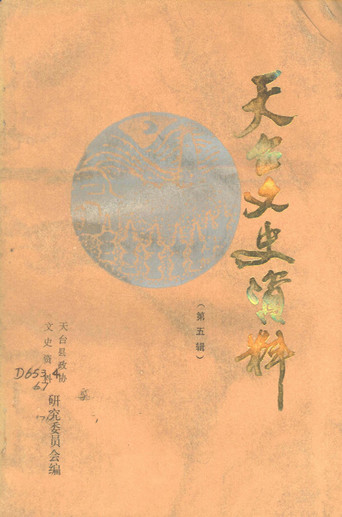 天台文史资料
(第五辑)
天台县政协
文史资料
研究委员会编
D653.4
67